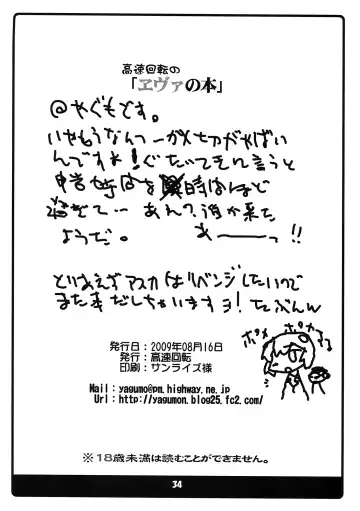 高速回転の
「ヱヴァの本」
@やぐもです。
いやもうなんつーか〆切がやばい
んですよ!ぐたいてきに言うと
申告時間を 時ほど
過ぎて… あれ?誰か来た
ようだ。 あーーっ!!
とりあえずアスカはリベンジしたいので
また本だしちゃいますョ! たぶんw
ポメ ポカ
発行日：2009年08月16日
発行：高速回転
印刷：サンライズ様
Mail：yagumo@pm.highway.ne.jp
Url：http://yagumon.blog25.fc2.com/
※18歳未満は読むことができません。
34